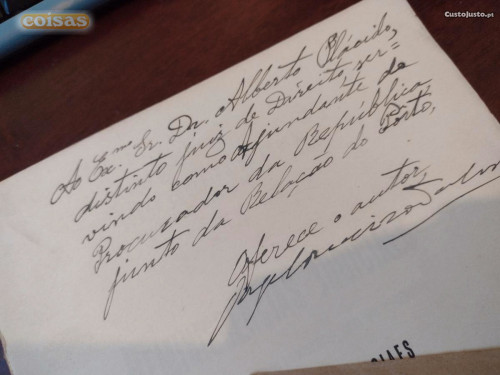 coisas
CustoJusto.pt
Ao Ex.mo Sr. Dr. Alberto Plácido,
distinto juiz de Direito, ser=
vindo como ajundante de
Procurador da República
junto da Relação do Porto,
Oferece o autor,